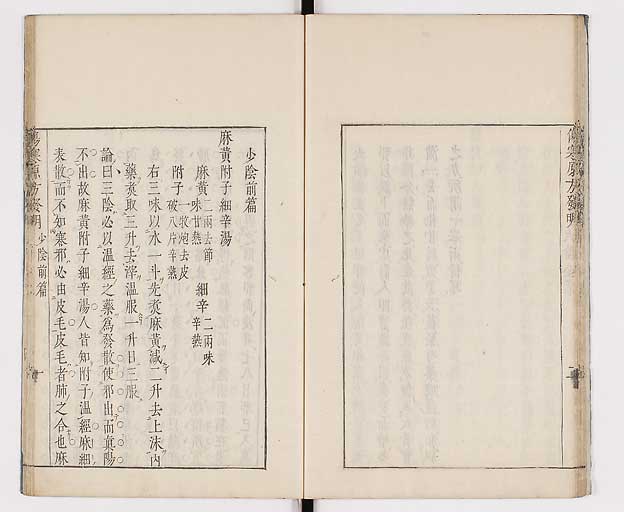 少陰前篇
麻黄附子細辛湯
麻黄 二兩去節 味甘熱 細辛 二兩 味辛熱
附子 一枚炮去皮 破八片辛熱
右三味以水一斗先煑麻黄減二升去上沫内
藥煑取三升去滓温服一升日三服
論曰三陰必以温經之藥爲發散使邪出而眞陽
不出故麻黄附子細辛湯人皆知附子温經麻細
表散而不知寒邪必由皮毛皮毛者肺之合也麻
傷寒原方發明 少陰前篇 一
傷寒原方發明